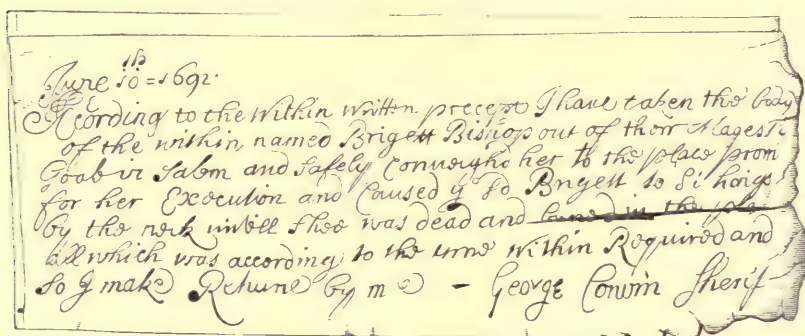 June 10th = 1692.
Acording to the Within Written precept I have taken the body
of the within named Brigett Bishop out of their Magesti
Goal in Salem and Safely Conveighd her to the place provi
for her Execution and Caused y sd Brigett to be hang
by the neck untill Shee was dead and buried in the
all which was according to the time Within Required and
So I make Returne by me - George Corwin Sherif